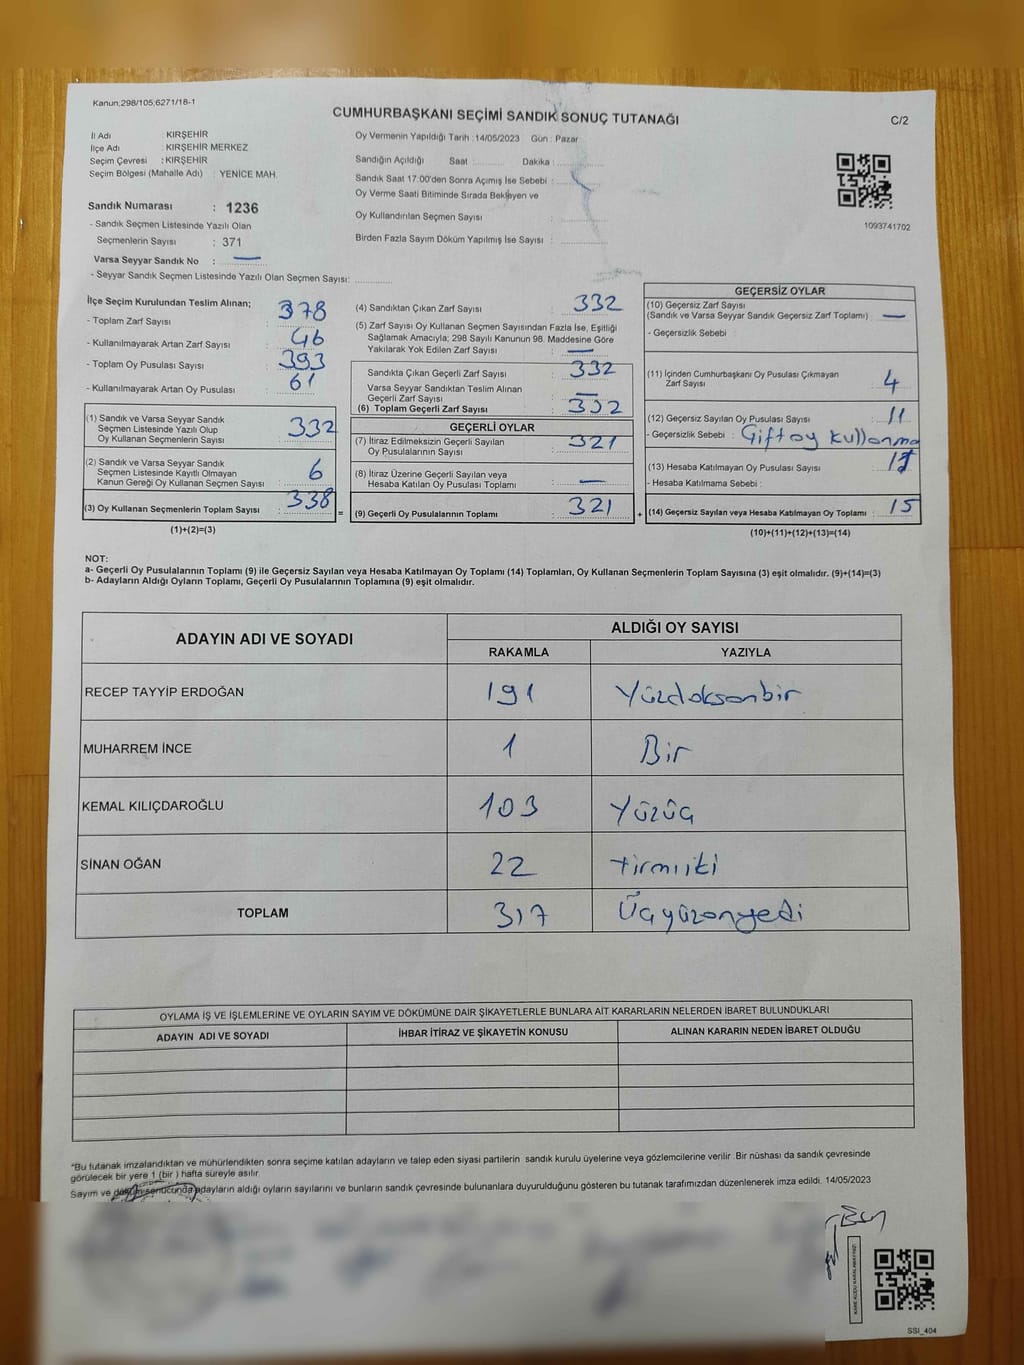 Kanun;298/105;6271/18-1
CUMHURBAŞKANI SEÇİMİ SANDIK SONUÇ TUTANAĞI
C/2
İl Adı : KIRŞEHİR
İlçe Adı : KIRŞEHİR MERKEZ
Seçim Çevresi : KIRŞEHİR
Seçim Bölgesi (Mahalle Adı) : YENİCE MAH.
Sandık Numarası : 1236
- Sandık Seçmen Listesinde Yazılı Olan
Seçmenlerin Sayısı : 371
Varsa Seyyar Sandık No : —
- Seyyar Sandık Seçmen Listesinde Yazılı Olan Seçmen Sayısı:
Oy Vermenin Yapıldığı Tarih : 14/05/2023 Gün : Pazar
Sandığın Açıldığı Saat Dakika :
Sandık Saat 17:00'den Sonra Açımış İse Sebebi :
Oy Verme Saati Bitiminde Sırada Bekleyen ve
Oy Kullandırılan Seçmen Sayısı :
Birden Fazla Sayım Döküm Yapılmış İse Sayısı :
1093741702
İlçe Seçim Kurulundan Teslim Alınan;
- Toplam Zarf Sayısı : 378
- Kullanılmayarak Artan Zarf Sayısı : 46
- Toplam Oy Pusulası Sayısı : 393
- Kullanılmayarak Artan Oy Pusulası : 61
(1) Sandık ve Varsa Seyyar Sandık
Seçmen Listesinde Yazılı Olup
Oy Kullanan Seçmenlerin Sayısı : 332
(2) Sandık ve Varsa Seyyar Sandık
Seçmen Listesinde Kayıtlı Olmayan
Kanun Gereği Oy Kullanan Seçmen Sayısı : 6
(3) Oy Kullanan Seçmenlerin Toplam Sayısı : 338
(1)+(2)=(3)
(4) Sandıktan Çıkan Zarf Sayısı : 332
(5) Zarf Sayısı Oy Kullanan Seçmen Sayısından Fazla İse, Eşitliği
Sağlamak Amacıyla; 298 Sayılı Kanunun 98. Maddesine Göre
Yakılarak Yok Edilen Zarf Sayısı : —
Sandıkta Çıkan Geçerli Zarf Sayısı : 332
Varsa Seyyar Sandıktan Teslim Alınan
Geçerli Zarf Sayısı : —
(6) Toplam Geçerli Zarf Sayısı : 332
GEÇERLİ OYLAR
(7) İtiraz Edilmeksizin Geçerli Sayılan
Oy Pusulalarının Sayısı : 321
(8) İtiraz Üzerine Geçerli Sayılan veya
Hesaba Katılan Oy Pusulası Toplamı : —
= (9) Geçerli Oy Pusulalarının Toplamı : 321 +
GEÇERSİZ OYLAR
(10) Geçersiz Zarf Sayısı
(Sandık ve Varsa Seyyar Sandık Geçersiz Zarf Toplamı) : —
- Geçersizlik Sebebi :
(11) İçinden Cumhurbaşkanı Oy Pusulası Çıkmayan
Zarf Sayısı : 4
(12) Geçersiz Sayılan Oy Pusulası Sayısı : 11
- Geçersizlik Sebebi : Çift oy kullanma
(13) Hesaba Katılmayan Oy Pusulası Sayısı :
- Hesaba Katılmama Sebebi :
(14) Geçersiz Sayılan veya Hesaba Katılmayan Oy Toplamı : 15
(10)+(11)+(12)+(13)=(14)
NOT:
a- Geçerli Oy Pusulalarının Toplamı (9) ile Geçersiz Sayılan veya Hesaba Katılmayan Oy Toplamı (14) Toplamları, Oy Kullanan Seçmenlerin Toplam Sayısına (3) eşit olmalıdır. (9)+(14)=(3)
b- Adayların Aldığı Oyların Toplamı, Geçerli Oy Pusulalarının Toplamına (9) eşit olmalıdır.
ADAYIN ADI VE SOYADI ALDIĞI OY SAYISI
RAKAMLA YAZIYLA
RECEP TAYYİP ERDOĞAN 191 Yüzdoksanbir
MUHARREM İNCE 1 Bir
KEMAL KILIÇDAROĞLU 103 Yüzüç
SİNAN OĞAN 22 Yirmiiki
TOPLAM 317 Üçyüzonyedi
OYLAMA İŞ VE İŞLEMLERİNE VE OYLARIN SAYIM VE DÖKÜMÜNE DAİR ŞİKAYETLERLE BUNLARA AİT KARARLARIN NELERDEN İBARET BULUNDUKLARI
ADAYIN ADI VE SOYADI İHBAR İTİRAZ VE ŞİKAYETİN KONUSU ALINAN KARARIN NEDEN İBARET OLDUĞU
*Bu tutanak imzalandıktan ve mühürlendikten sonra seçime katılan adayların ve talep eden siyasi partilerin sandık kurulu üyelerine veya gözlemcilerine verilir .Bir nüshası da sandık çevresinde
görülecek bir yere 1 (bir ) hafta süreyle asılır.
Sayım ve döküm sonucunda adayların aldığı oyların sayılarını ve bunların sandık çevresinde bulunanlara duyurulduğunu gösteren bu tutanak tarafımızdan düzenlenerek imza edildi. 14/05/2023
SSI_404